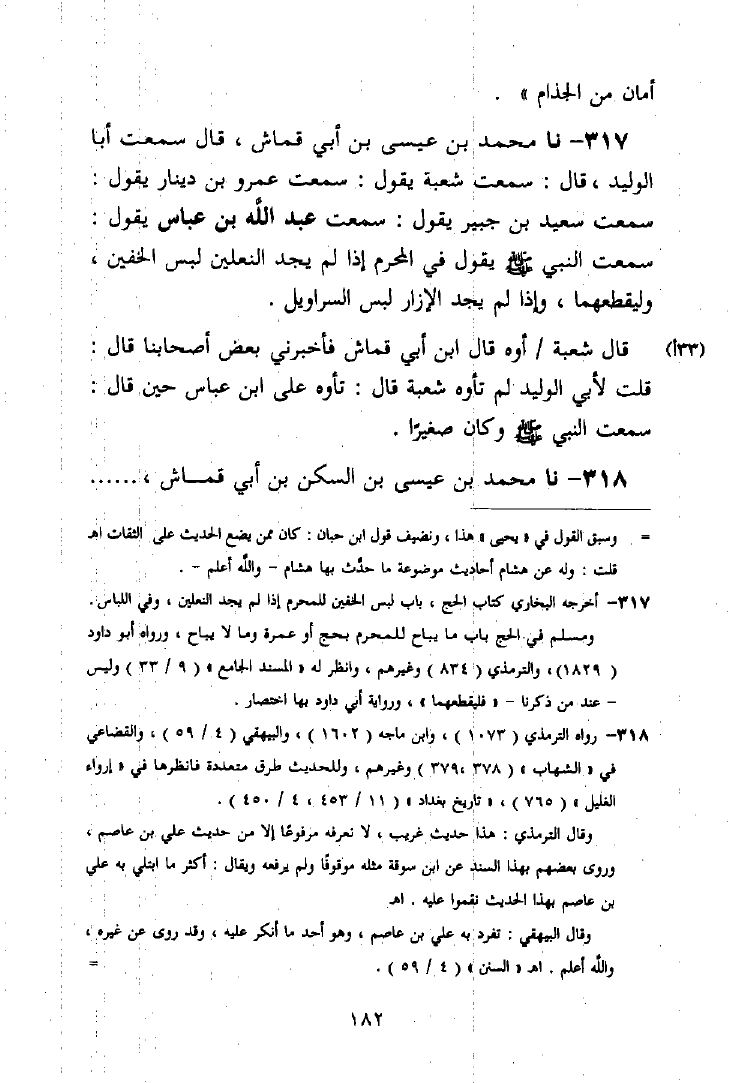 أمان من الجذام » .
٣١٧- نا محمد بن عيسى بن أبي قماش ، قال سمعت أبا
الوليد ، قال : سمعت شعبة يقول : سمعت عمرو بن دينار يقول :
سمعت سعيد بن جبير يقول : سمعت عبد اللَّه بن عباس يقول :
سمعت النبي ﷺ يقول في المحرم إذا لم يجد النعلين لبس الخفين ،
وليقطعهما ، وإذا لم يجد الإزار لبس السراويل .
(٣٣أ) قال شعبة / أوه قال ابن أبي قماش فأخبرني بعض أصحابنا قال :
قلت لأبي الوليد لم تأوه شعبة قال : تأوه على ابن عباس حين قال :
سمعت النبي ﷺ وكان صغيرًا .
٣١٨- نا محمد بن عيسى بن السكن بن أبي قمـــاش ، ......
= وسبق القول في « يحيى » هذا ، ونضيف قول ابن حبان : كان ممن يضع الحديث على الثقات اهـ
قلت : وله عن هشام أحاديث موضوعة ما حدَّث بها هشام - واللَّه أعلم - .
٣١٧- أخرجه البخاري كتاب الحج ، باب لبس الخفين للمحرم إذا لم يجد النعلين ، وفي اللباس .
ومسلم في الحج باب ما يباح للمحرم بحج أو عمرة وما لا يباح ، ورواه أبو داود
( ١٨٢٩ )، والترمذي ( ٨٣٤ ) وغيرهم ، وانظر له « المسند الجامع » ( ٩ / ٣٣ ) وليس
- عند من ذكرنا - « فليقطعهما » ، ورواية أبي داود بها اختصار .
٣١٨- رواه الترمذي ( ١٠٧٣ ) ، وابن ماجه ( ١٦٠٢ ) ، والبيهقي ( ٤ / ٥٩ ) ، والقضاعي
في « الشهاب » ( ٣٧٨ ،٣٧٩ ) وغيرهم ، وللحديث طرق متعددة فانظرها في « إرواء
الغليل » ( ٧٦٥ ) ، « تاريخ بغداد » ( ١١ / ٤٥٣ ، ٤ / ٤٥٠ ) .
وقال الترمذي : هذا حديث غريب ، لا نعرفه مرفوعًا إلا من حديث علي بن عاصم ،
وروى بعضهم بهذا السند عن ابن سوقة مثله موقوفًا ولم يرفعه ويقال : أكثر ما ابتلي به علي
بن عاصم بهذا الحديث نقموا عليه . اهـ
وقال البيهقي : تفرد به علي بن عاصم ، وهو أحد ما أنكر عليه ، وقد روى عن غيره ،
واللَّه أعلم . اهـ « السنن » ( ٤ / ٥٩ ) . =
١٨٢